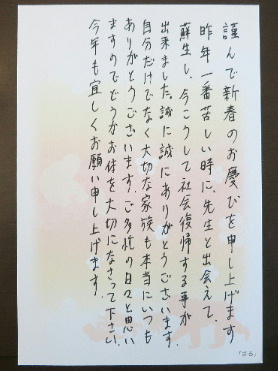 謹んで新春のお慶びを申し上げます
昨年一番苦しい時に、先生と出会えて、
蘇生し、今こうして社会復帰する事が
出来ました。誠に誠にありがとうございます。
自分だけでなく大切な家族も本当にいつも
ありがとうございます。ご多忙の日々と思い
ますのでどうかお体を大切になさって下さい。
今年も宜しくお願い申し上げます。